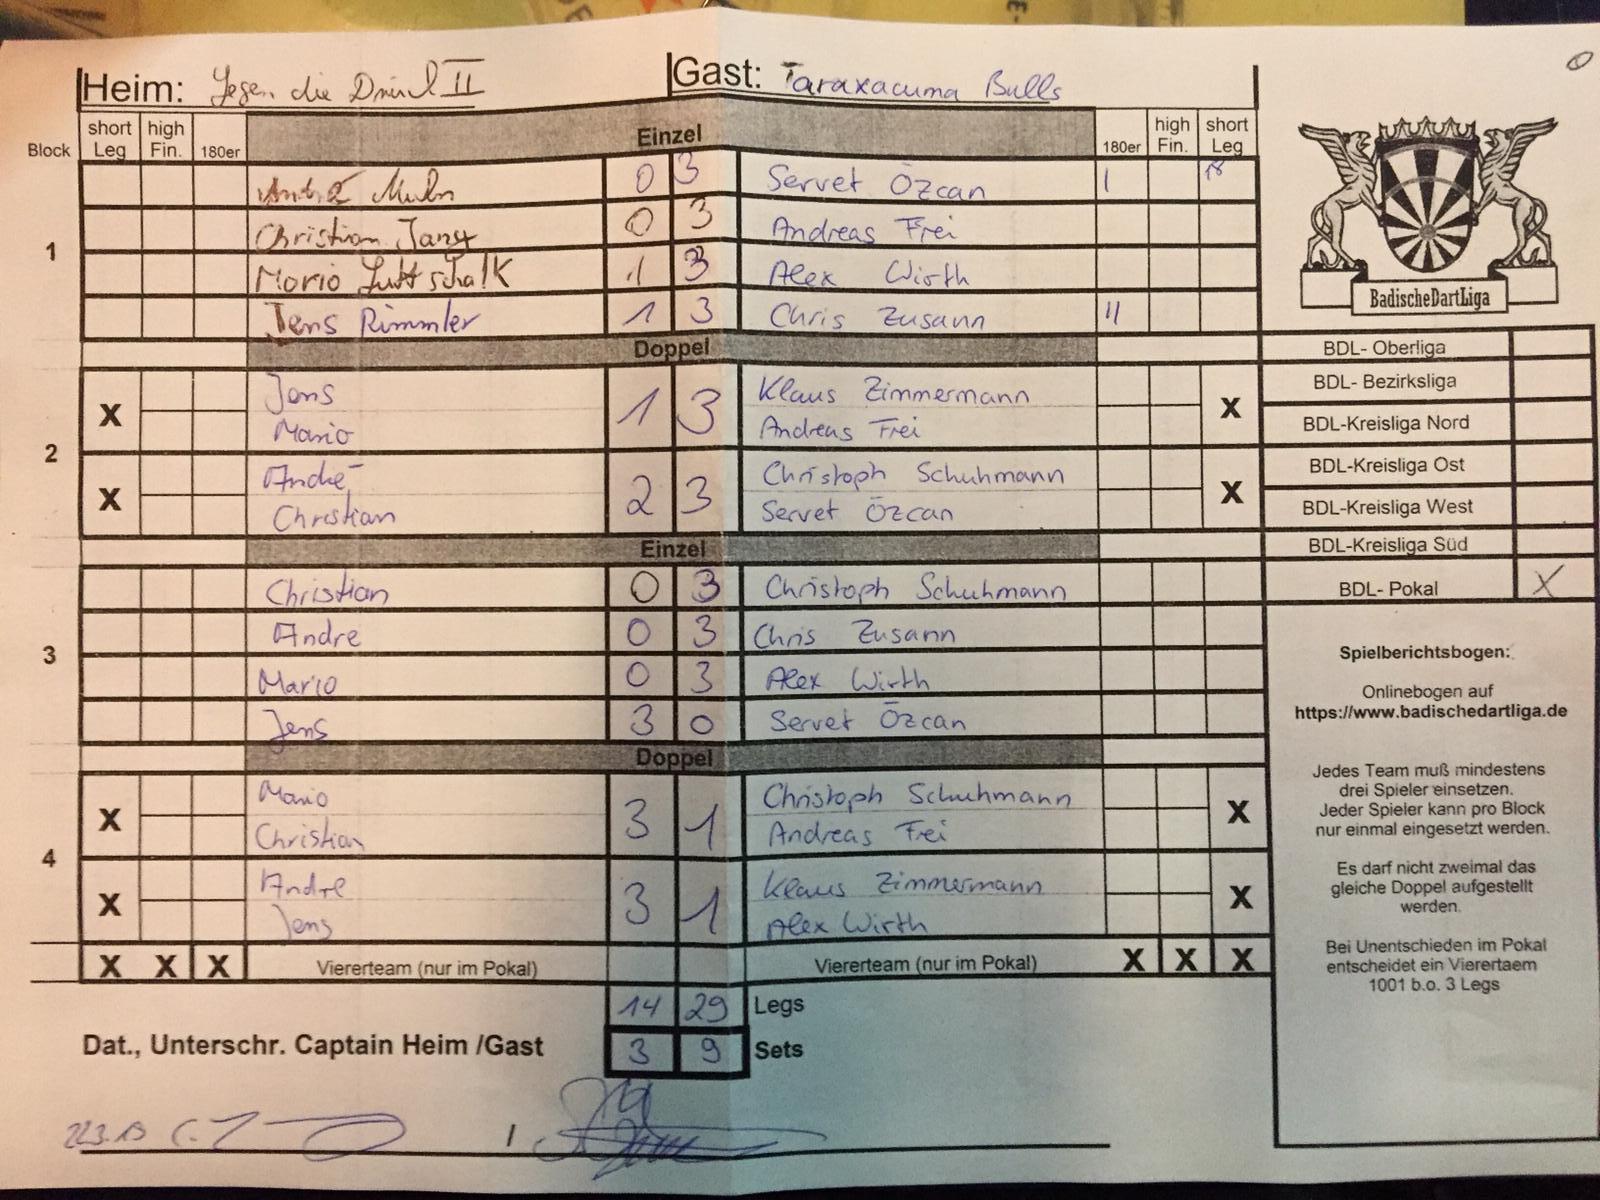 Heim: Gegen die II Gast: Taraxacuma Bulls
Block short Leg high Fin. 180er Einzel 180er high Fin. short Leg
1
André 0 3 Servet Özcan I 18
Christian Jany 0 3 Andreas Frei
Mario Luttschalk 1 3 Alex Wirth
Jens Rimmler 1 3 Chris Zusann II
Doppel
2
X Jens 1 3 Klaus Zimmermann X
Mario Andreas Frei
X André 2 3 Christoph Schuhmann X
Christian Servet Özcan
Einzel
3
Christian 0 3 Christoph Schuhmann
Andre 0 3 Chris Zusann
Mario 0 3 Alex Wirth
Jens 3 0 Servet Özcan
Doppel
4
X Mario 3 1 Christoph Schuhmann X
Christian Andreas Frei
X Andre 3 1 Klaus Zimmermann X
Jens Alex Wirth
X X X Viererteam (nur im Pokal) Viererteam (nur im Pokal) X X X
14 29 Legs
3 9 Sets
Dat., Unterschr. Captain Heim /Gast
/
BadischeDartLiga
BDL- Oberliga
BDL- Bezirksliga
BDL-Kreisliga Nord
BDL-Kreisliga Ost
BDL-Kreisliga West
BDL-Kreisliga Süd
BDL- Pokal X
Spielberichtsbogen:
Onlinebogen auf
https://www.badischedartliga.de
Jedes Team muß mindestens
drei Spieler einsetzen.
Jeder Spieler kann pro Block
nur einmal eingesetzt werden.
Es darf nicht zweimal das
gleiche Doppel aufgestellt
werden.
Bei Unentschieden im Pokal
entscheidet ein Vierertaem
1001 b.o. 3 Legs